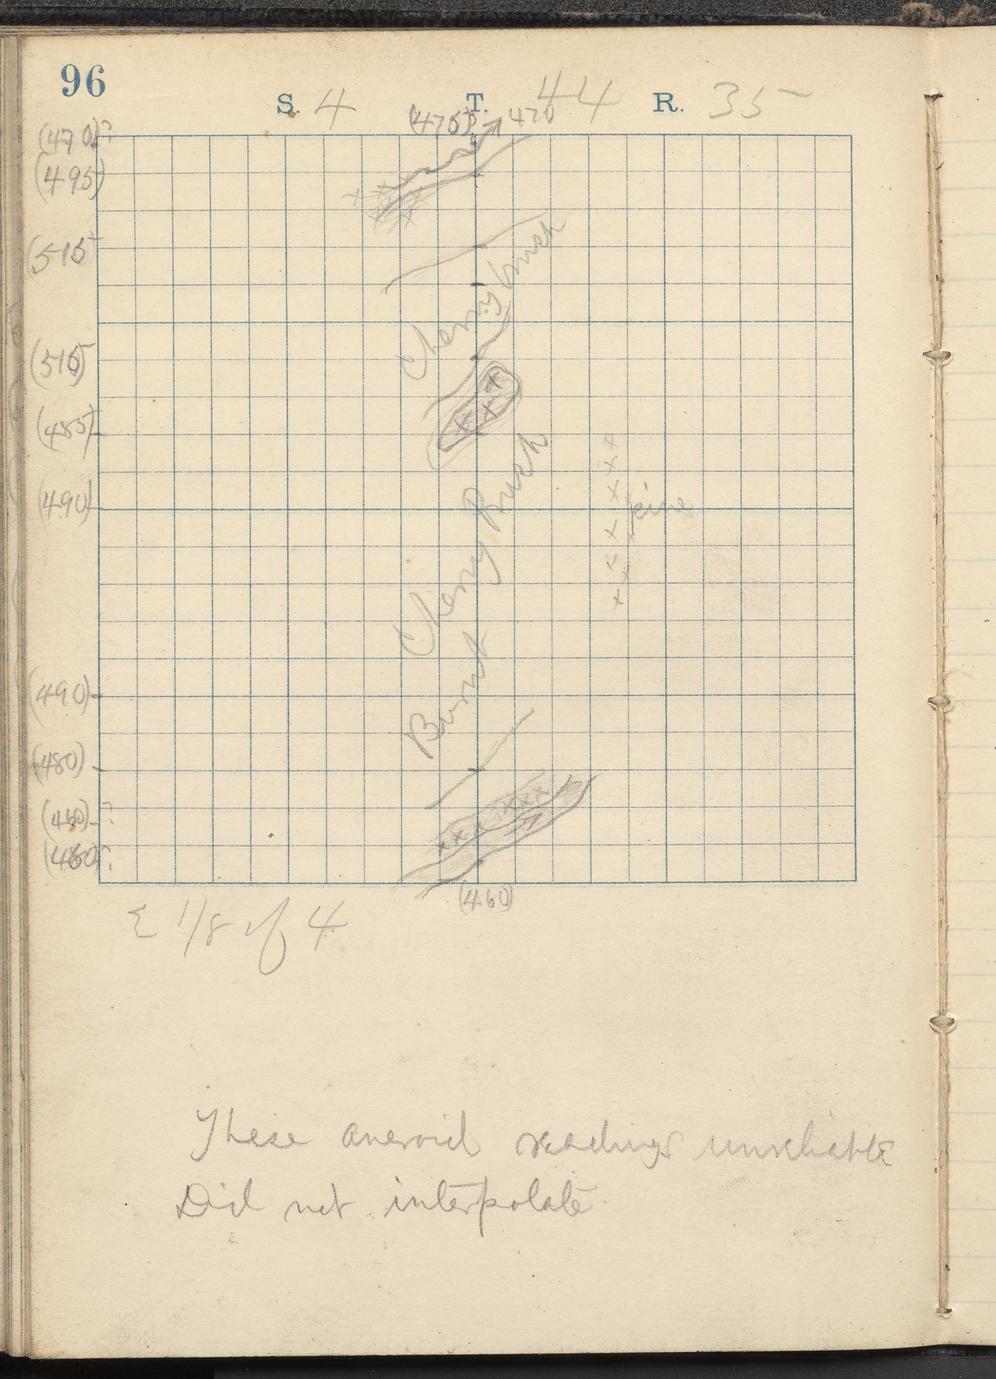 96
S. 4 T. 44 R. 35
(475) 470
(470)?
(495)
(515)
Cherry brush
(515)
(485)
(490)
Cherry Brush
Burnt
(490)
(480)
(460)?
(460)?
(460)
E 1/8 of 4
These aneroid readings unreliable
Did not interpolate